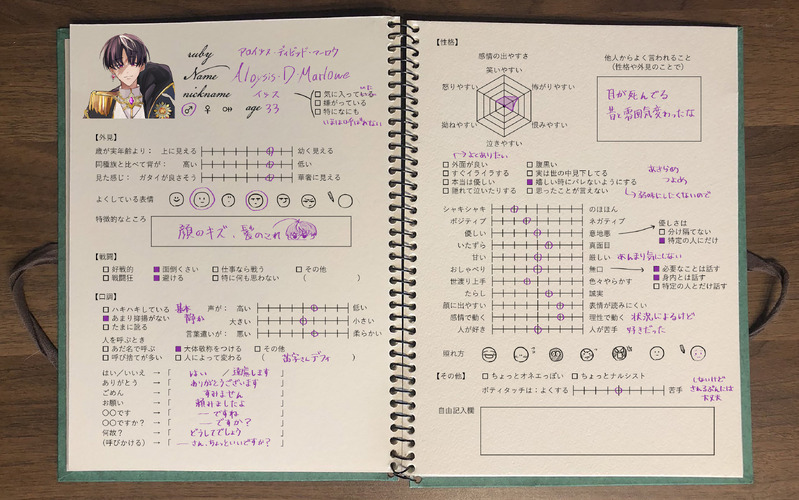 ruby アロイシス・デイビッド・マーロウ
Name Aloysis・D・Marlowe
nickname イシス
♂ ♀ age 33
□ 気に入っている
□ 嫌がっている
□ 特になにも
いまは呼ばれない
【外見】
歳が実年齢より： 上に見える 幼く見える
同種族と比べて背が： 高い 低い
見た感じ： ガタイが良さそう 華奢に見える
よくしている表情
特徴的なところ
顔のキズ、髪のこれ
【戦闘】
□ 好戦的 ■ 面倒くさい □ 仕事なら戦う □ その他
□ 戦闘狂 ■ 避ける □ 特に何も思わない ( )
【口調】
□ ハキハキしている 基本 声が： 高い 低い
■ あまり抑揚がない 静か 大きい 小さい
□ たまに訛る 言葉遣いが： 悪い 柔らかい
人を呼ぶとき
□ あだ名で呼ぶ ■ 大体敬称をつける □ その他
□ 呼び捨てが多い □ 人によって変わる ( 苗字さんデフォ )
はい／いいえ →「 はい ／遠慮します 」
ありがとう →「 ありがとうございます 」
ごめん →「 すみません 」
お願い →「 頼みましたよ 」
○○です →「 ―ですね 」
○○ですか？ →「 ―ですか？ 」
何故？ →「 どうしてでしょう 」
(呼びかける) →「 ―さん、ちょっといいですか？ 」
【性格】
感情の出やすさ
笑いやすい
怒りやすい 怖がりやすい
拗ねやすい 恨みやすい
泣きやすい
他人からよく言われること
（性格や外見のことで）
目が死んでる
昔と雰囲気変わったな
よくありたい
□ 外面が良い □ 腹黒い
□ すぐイライラする □ 実は世の中見下してる
□ 本当は優しい ■ 嬉しい時にバレないようにする
□ 隠れて泣いたりする □ 思ったことが言えない
あきらめ
つよめ
弱味にしたくないので
シャキシャキ のほほん
ポジティブ ネガティブ
優しい 意地悪
いたずら 真面目
甘い 厳しい あんまり気にしない
おしゃべり 無口
世渡り上手 色々やらかす
たらし 誠実
顔に出やすい 表情が読みにくい
感情で動く 理性で動く 状況によるけど
人が好き 人が苦手 好きだった
優しさは
□ 分け隔てない
■ 特定の人にだけ
■ 必要なことは話す
■ 身内とは話す
□ 特定の人とだけ話す
照れ方
【その他】 □ ちょっとオネエっぽい □ ちょっとナルシスト
ボディタッチは：よくする 苦手
しないけど
されるぶんには
大丈夫
自由記入欄